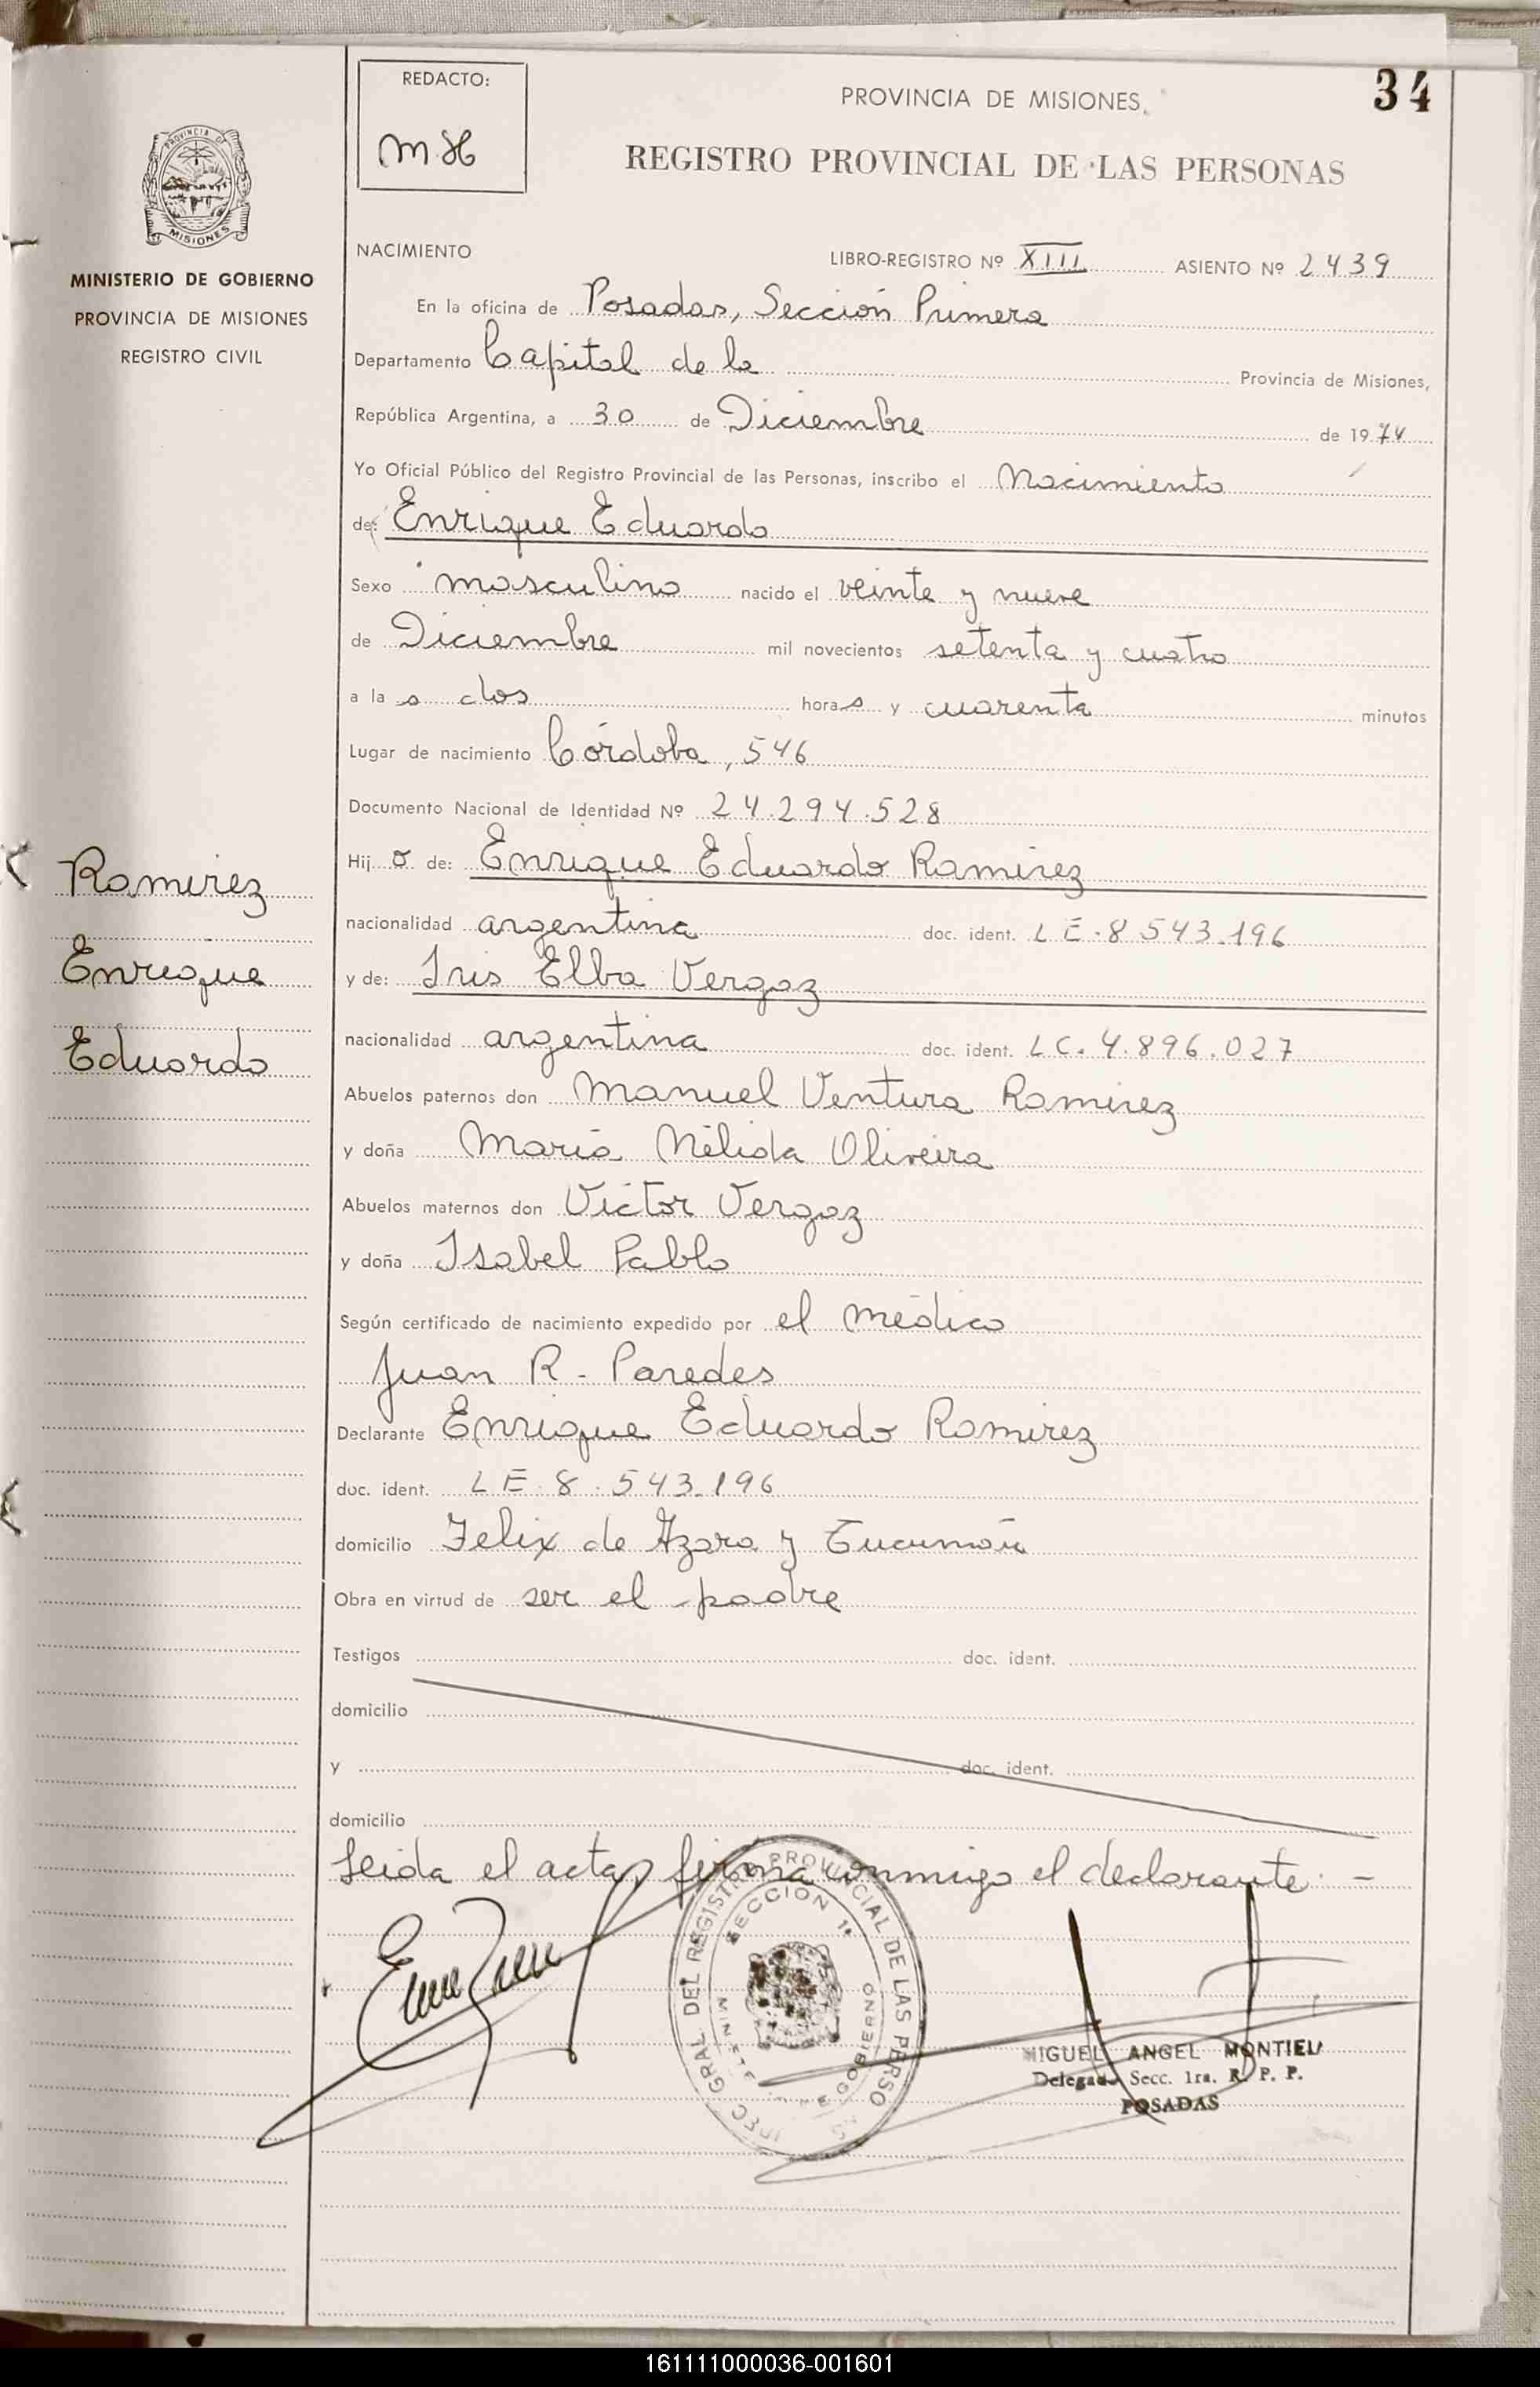 34
REDACTO:
PROVINCIA DE MISIONES
REGISTRO PROVINCIAL DE LAS PERSONAS
PROVINCIA DE
MISIONES
MINISTERIO DE GOBIERNO
PROVINCIA DE MISIONES
REGISTRO CIVIL
NACIMIENTO LIBRO-REGISTRO Nº XIII ASIENTO Nº 2439
En la oficina de Posadas, Sección Primera
Departamento Capital de la Provincia de Misiones,
República Argentina, a 30 de Diciembre de 1974
Yo Oficial Público del Registro Provincial de las Personas, inscribo el Nacimiento
de: Enrique Eduardo
Sexo masculino nacido el veinte y nueve
de Diciembre mil novecientos setenta y cuatro
a la s dos hora s y cuarenta minutos
Lugar de nacimiento Córdoba, 546
Documento Nacional de Identidad Nº 24.294.528
Hij o de: Enrique Eduardo Ramirez
nacionalidad argentina doc. ident. LE. 8.543.196
y de: Iris Elba Vergaz
nacionalidad argentina doc. ident. LC. 4.896.027
Abuelos paternos don Manuel Ventura Ramirez
y doña María Nélida Oliveira
Abuelos maternos don Victor Vergaz
y doña Isabel Pablo
Según certificado de nacimiento expedido por el médico
Juan R. Paredes
Declarante Enrique Eduardo Ramirez
doc. ident. LE. 8.543.196
domicilio Felix de Azara y Tucumán
Obra en virtud de ser el padre
Testigos doc. ident.
domicilio
y doc. ident.
domicilio
Leida el acta, firma conmigo el declarante. -
Ramirez
Enrique
Eduardo
GRAL. DEL REGISTRO PROVINCIAL DE LAS PERSO
SECCION 1ª
GOBIERNO
MIGUEL ANGEL MONTIEL
Delegado Secc. 1ra. R. P. P.
POSADAS
161111000036-001601